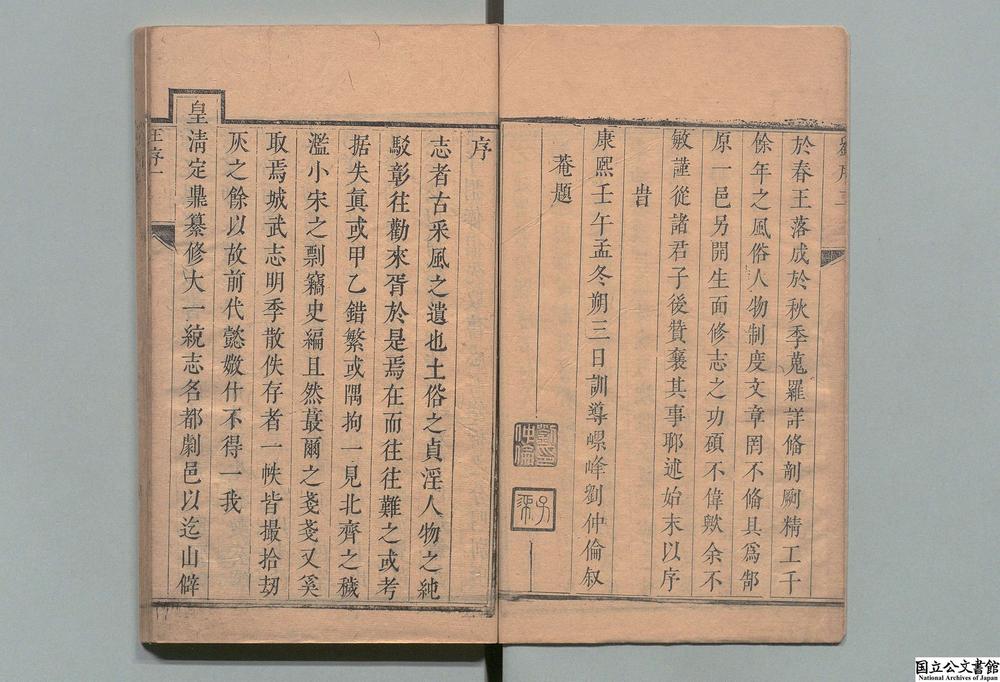 於春王落成於秋季蒐羅詳偹剞劂精工千
餘年之風俗人物制度文章罔不偹具爲郜
原一邑另開生面修志之功碩不偉歟余不
敏謹從諸君子後賛襄其事耶述始末以序
旹
康熙壬午孟冬朔三日訓導螺峰劉仲倫叙
菴題
劉序三
序
志者古釆風之遺也土俗之貞淫人物之純
駁彰往勸來胥於是焉在而往往難之或考
据失眞或甲乙錯繁或隅拘一見北齊之穢
濫小宋之剽竊史編且然蕞爾之戔戔又奚
取焉城武志明季散佚存者一帙皆撮拾刼
灰之餘以故前代懿媺什不得一我
皇淸定鼎纂修大一統志名都劇邑以迄山僻
王序一
国立公文書館
National Archives of Japan